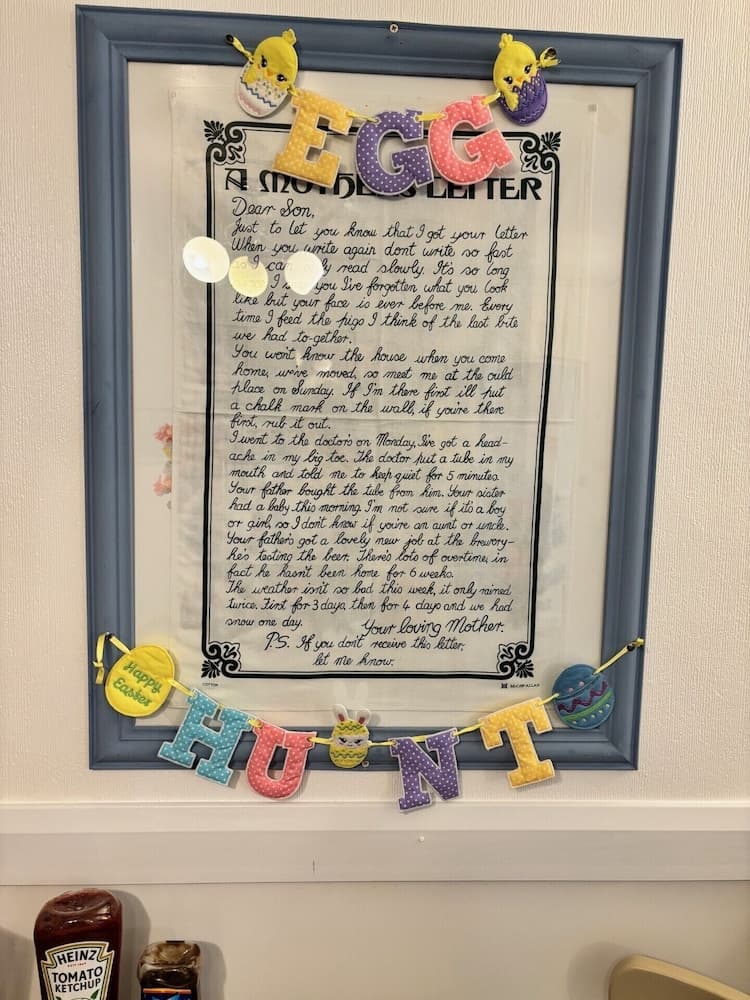 EGG
A MOTHER'S LETTER
Dear Son,
Just to let you know that I got your letter
When you write again dont write so fast
I can read slowly. It's so long
I you I've forgotten what you look
like but your face is ever before me. Every
time I feed the pigs I think of the last bite
we had to-gether.
You won't know the house when you come
home, we've moved, so meet me at the ould
place on Sunday. If I'm there first i'll put
a chalk mark on the wall, if you're there
first, rub it out.
I went to the doctors on Monday, I've got a head-
ache in my big toe. The doctor put a tube in my
mouth and told me to keep quiet for 5 minutes
Your father bought the tube from him. Your sister
had a baby this morning I'm not sure if it's a boy
or girl, so I don't know if you're an aunt or uncle.
Your father's got a lovely new job at the brewery-
he's testing the beer. There's lots of overtime, in
fact he hasn't been home for 6 weeks.
The weather isn't so bad this week, it only rained
twice. First for 3 days, then for 4 days and we had
snow one day. Your loving Mother.
P.S. If you don't receive this letter,
let me know.
Happy
Easter
HUNT
HEINZ
TOMATO
KETCHUP